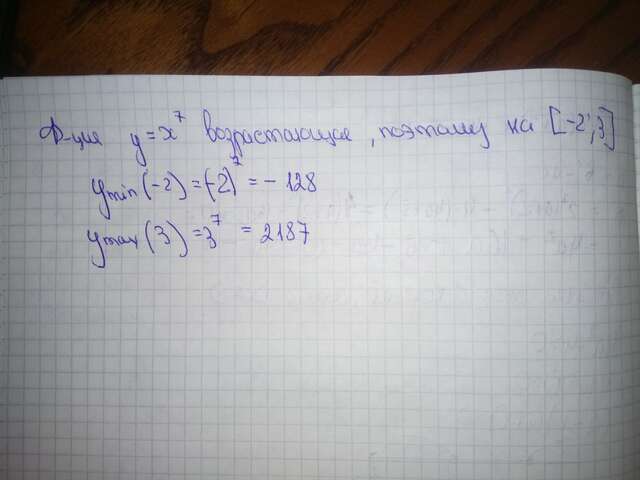 Ф-ция y=x⁷ возрастающая, поэтому на [-2;3]
ymin(-2)=(-2)⁷=-128
ymax(3)=3⁷=2187